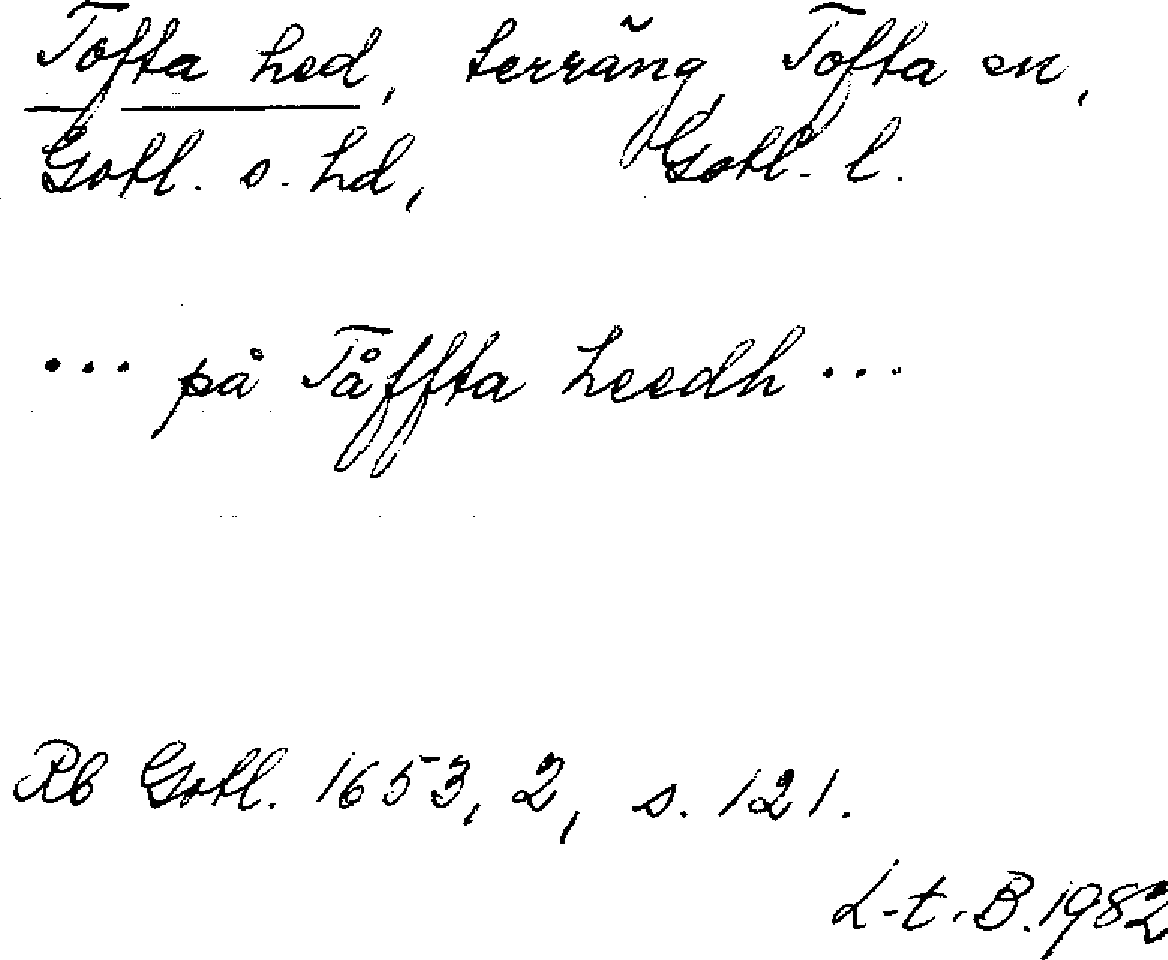 Tofta hed, terräng, Tofta sn,
Gotl. s. hd, Gotl. l.
... på Tåffta heedh ...
Rb Gotl. 1653, 2, s. 121.
L-t. B. 1982